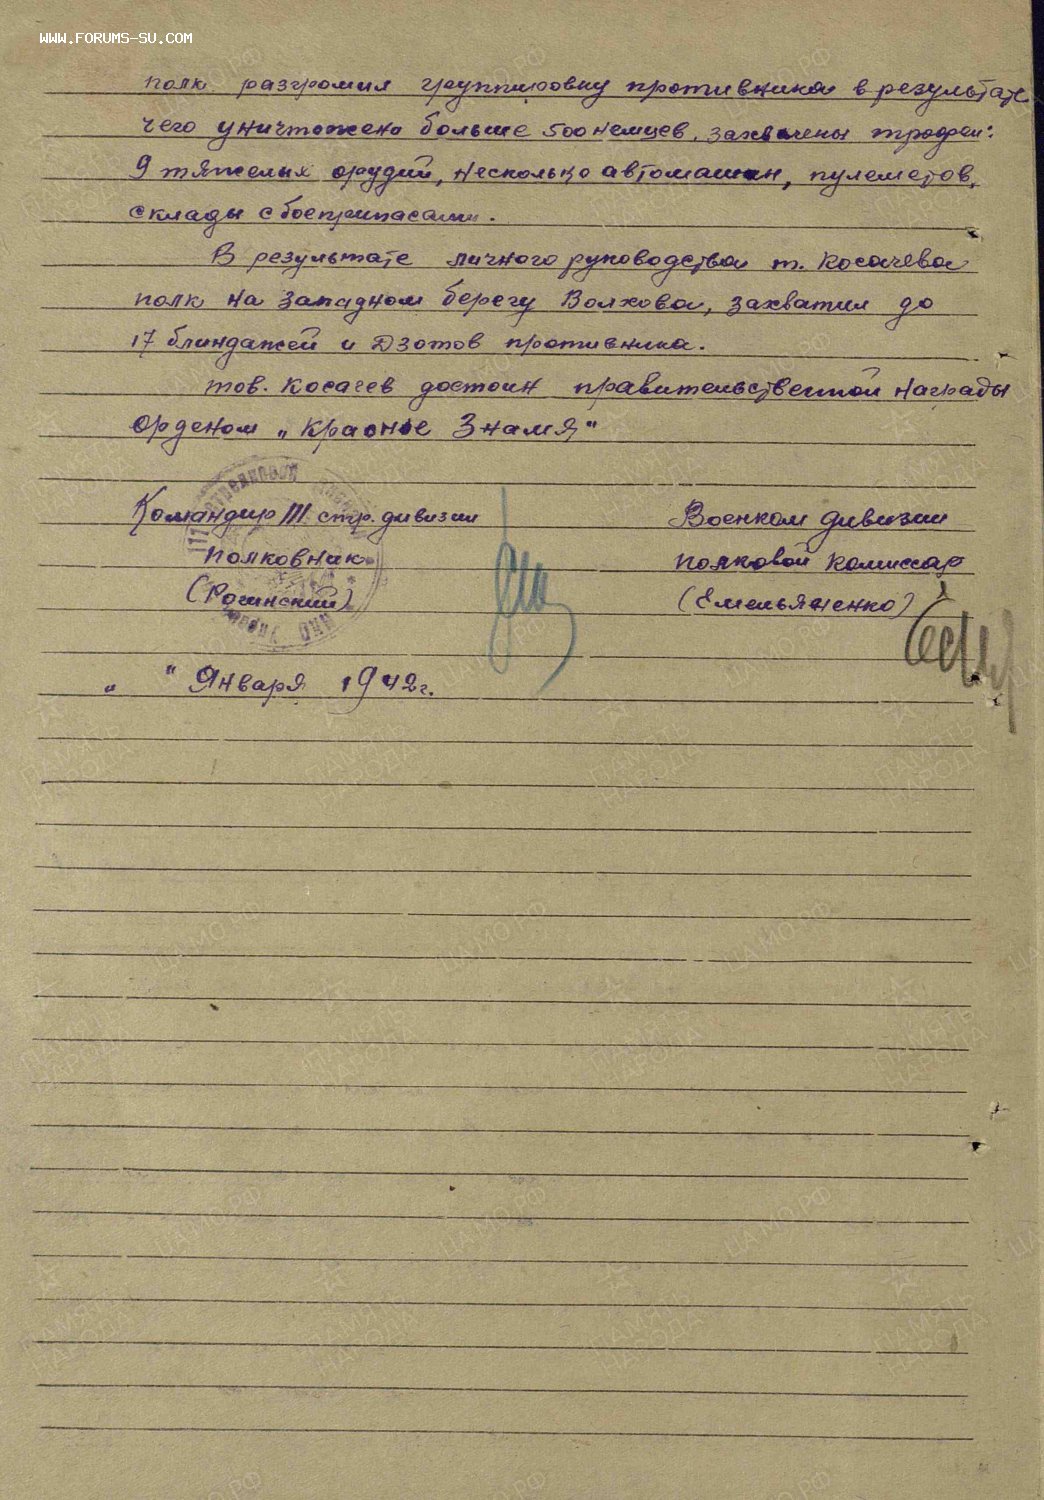 WWW.FORUMS-SU.COM
полк разгромил группировку противника в результате
чего уничтожено больше 500 немцев, захвачены трофеи:
9 тяжелых орудий, несколько автомашин, пулеметов,
склады с боеприпасами.
В результате личного руководства т. Косачева
полк на западном берегу Волхова, захватил до
17 блиндажей и Дзотов противника.
тов. Косачев достоин правительственной награды
Орденом „Красное Знамя"
Командир 111 стр. дивизии
Полковник
(Рогинский)
Военком дивизии
полковой комиссар
(Емельяненко)
„ " Января 1942г.
ПАМЯТЬ НАРОДА
ЦАМО.РФ